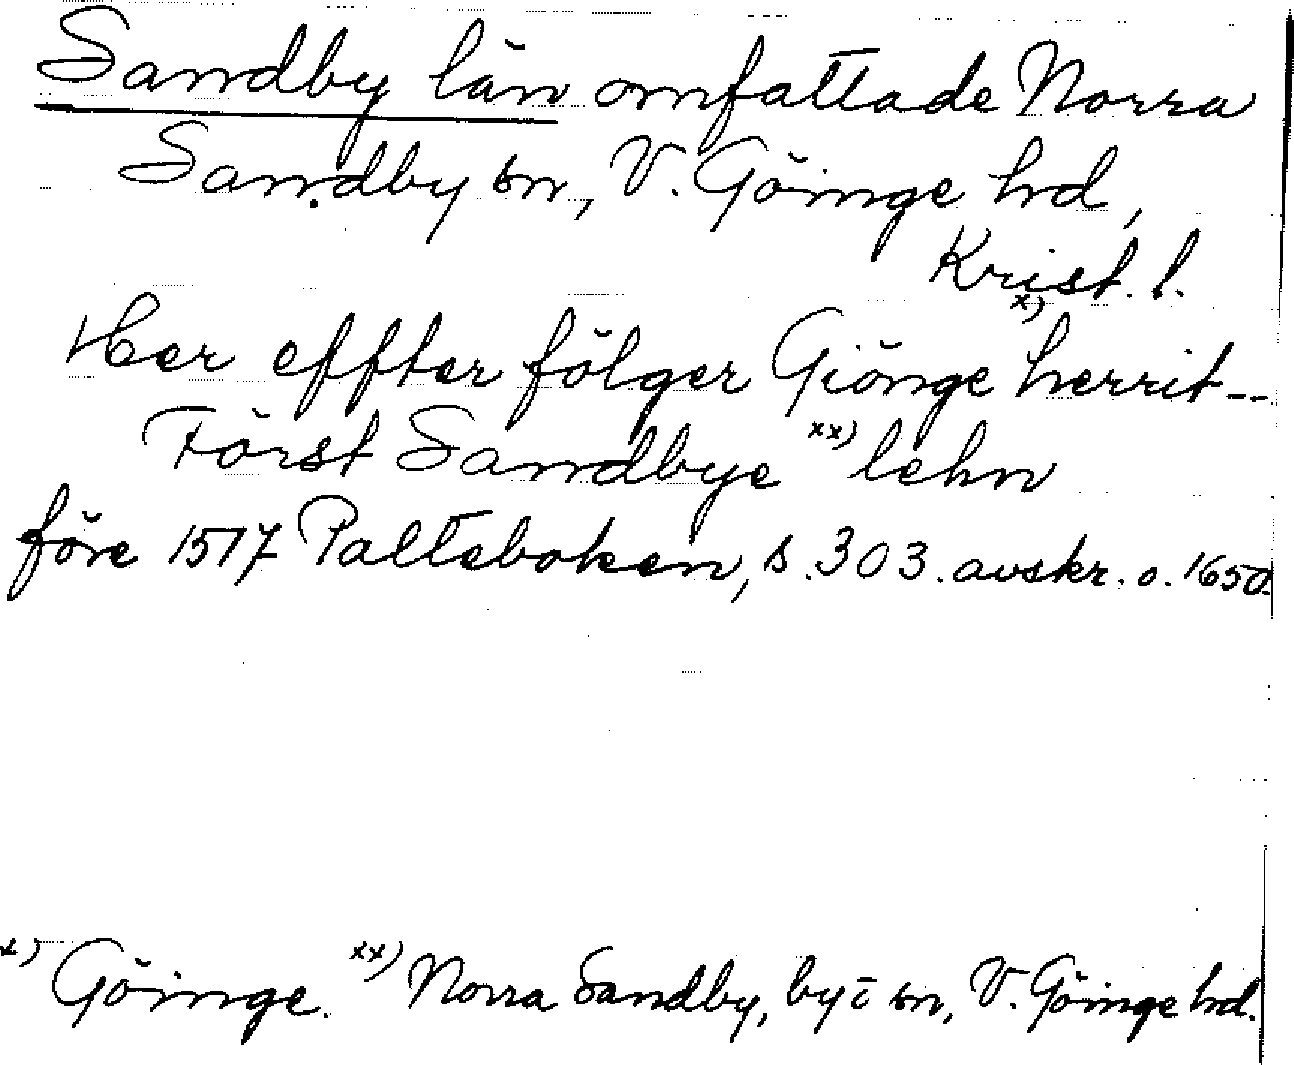 Sandby län omfattade Norra
Sandby sn, V. Göinge hd,
Krist. l.
Her effter fölger Giönge x) herrit --
Först Sandbye xx) lehn
före 1517 Palteboken, s. 303. avskr. o. 1650.
x) Göinge. xx) Norra Sandby, by i sn, V. Göinge hd.